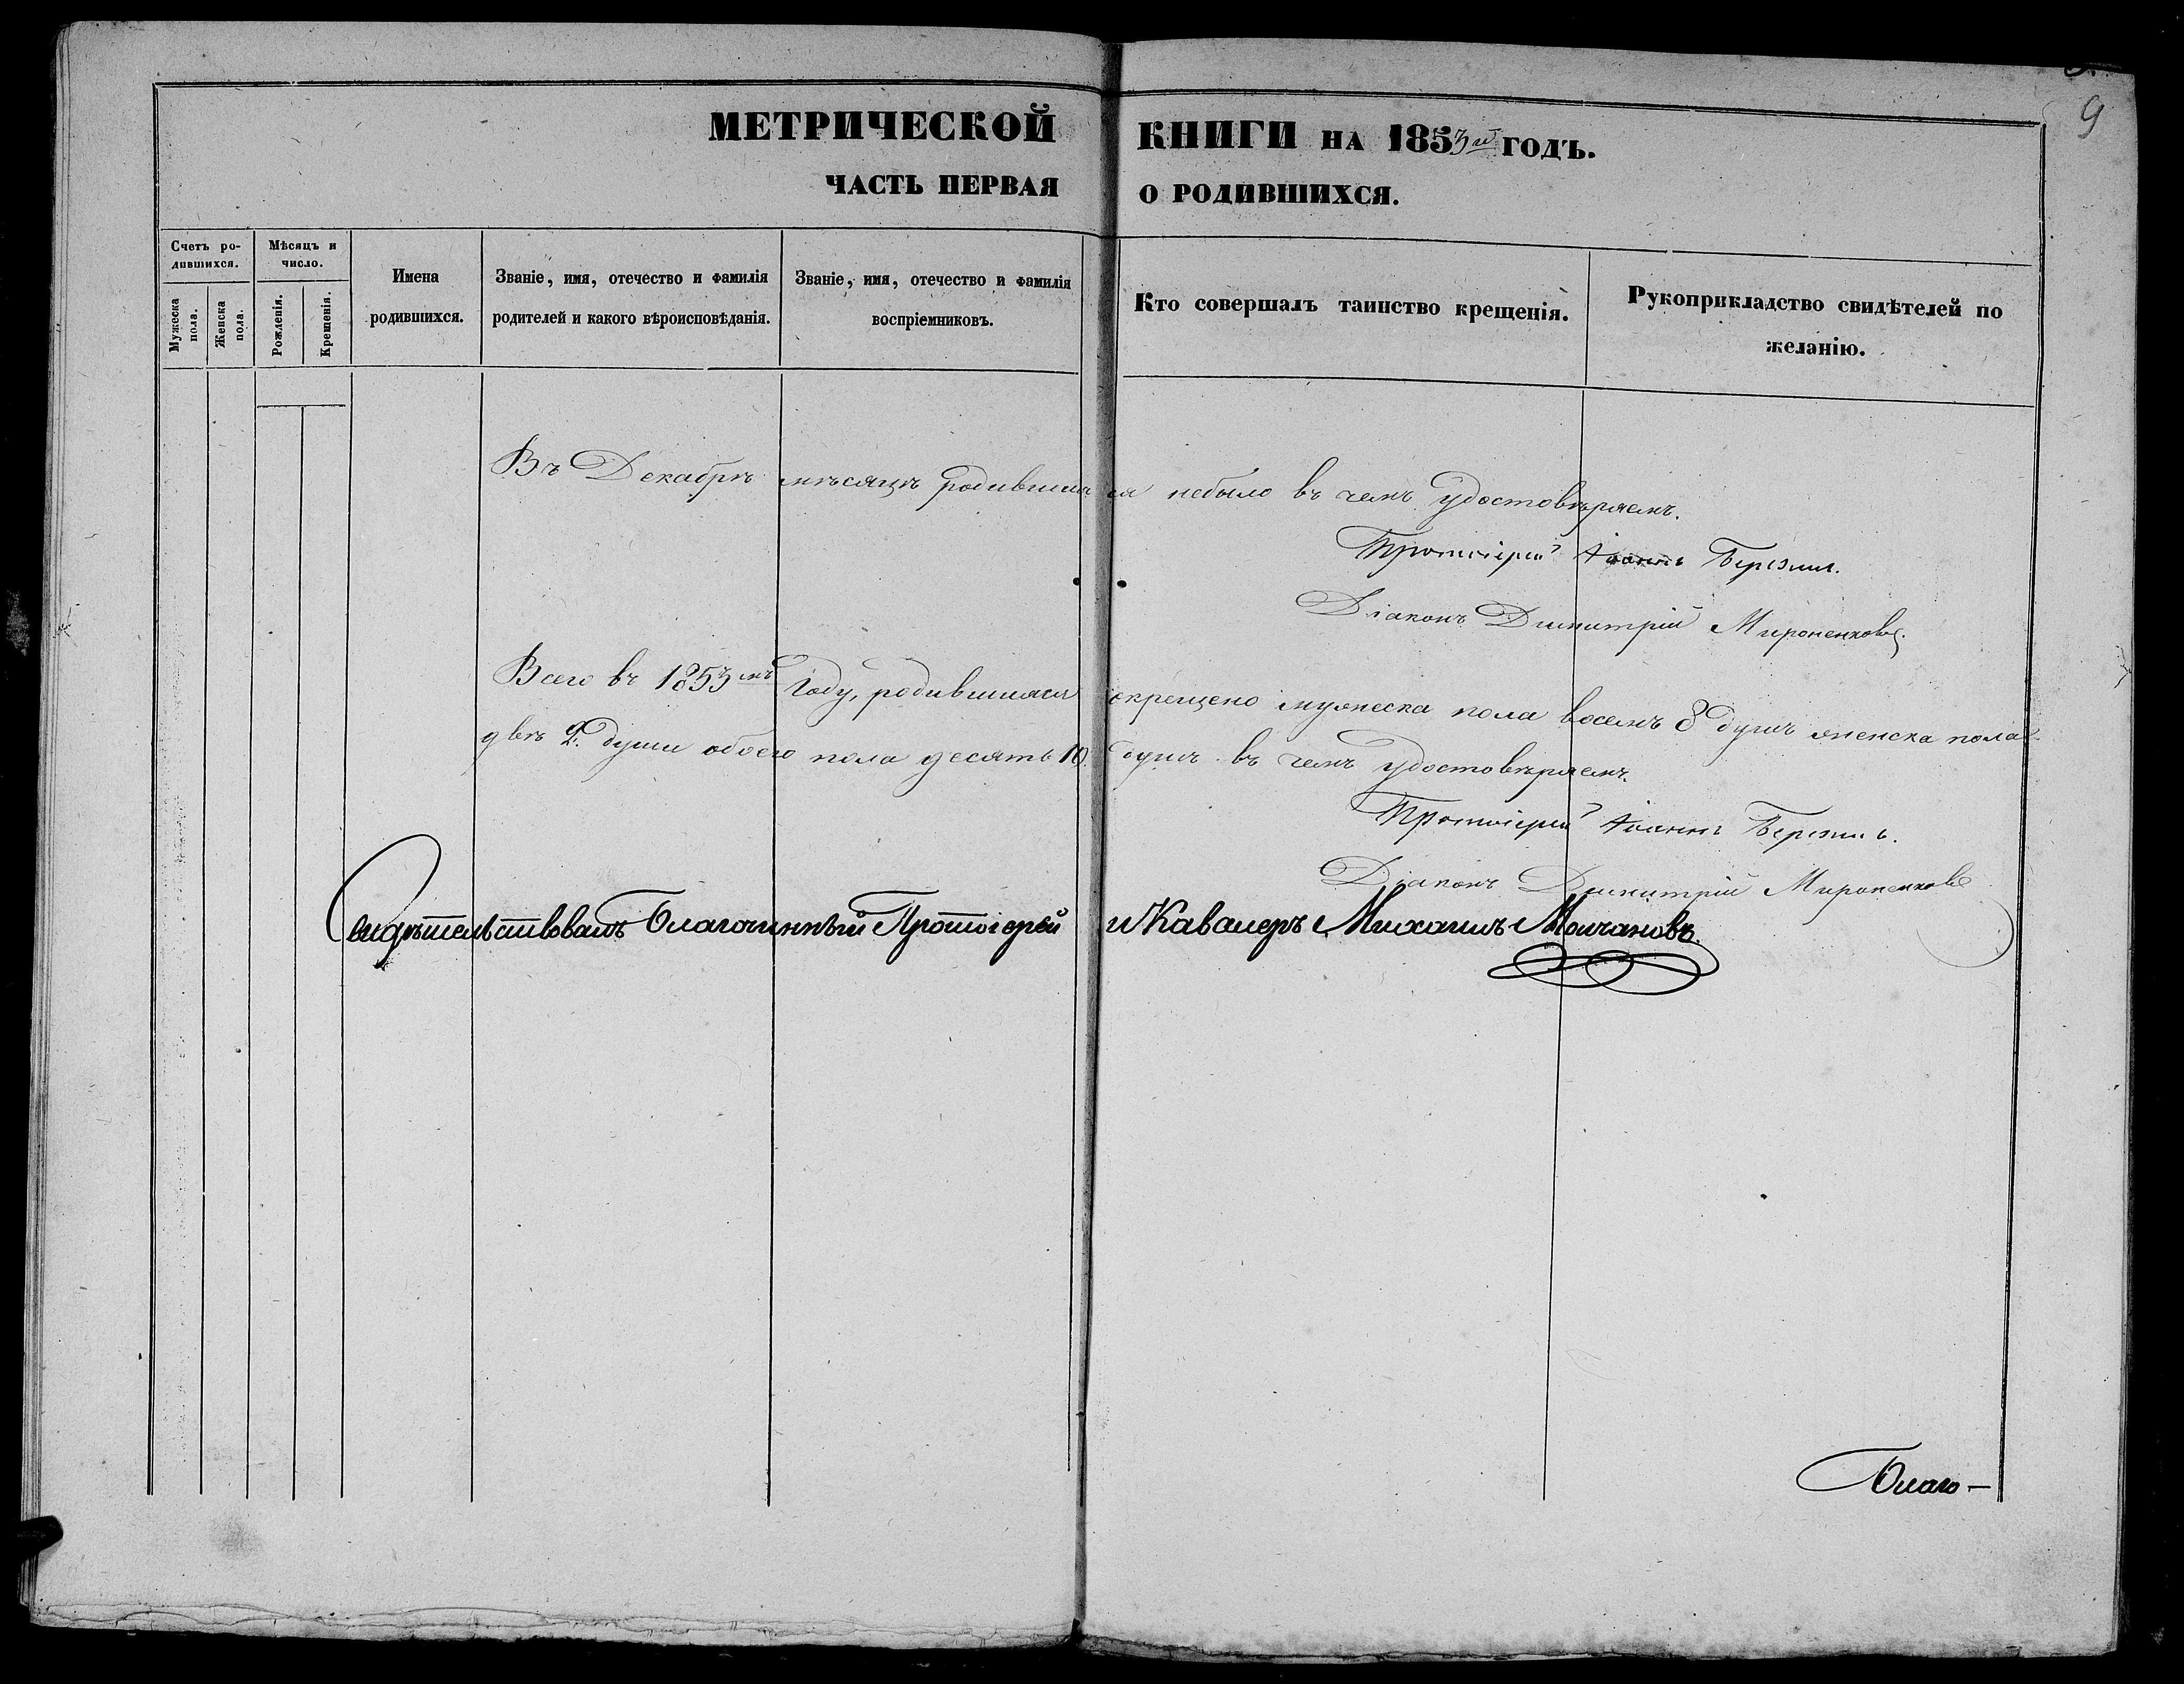 9
МЕТРИЧЕСКОЙ КНИГИ НА 1853й ГОДЪ.
ЧАСТЬ ПЕРВАЯ О РОДИВШИХСЯ.
Счетъ ро-
дившихся.
Мужеска
пола.
Женска
пола.
Мѣсяцъ и
число.
Рожденія.
Крещенія.
Имена
родившихся.
Званіе, имя, отечество и фамилія
родителей и какого вѣроисповѣданія.
Званіе, имя, отечество и фамилія
воспріемниковъ.
Кто совершалъ таинство крещенія.
Рукоприкладство свидѣтелей по
желанію.
Въ Декабрѣ мѣсяцѣ родившихся небыло въ чемъ удостовѣряемъ.
Протоіерей Іоаннъ
Діаконъ Димитрій Мироненковъ
Всего въ 1853мъ Году, родившихся окрещено мужеска пола восемь 8 душъ женска пола
двѣ 2. души обоего пола десять 10. душъ въ чемъ удостовѣряемъ.
Протоіерей Іоаннъ
Діаконъ Димитрій Мироненковъ
Свидѣтельствовалъ Благочинный Протоіерей и Кавалеръ Михаилъ Молчановъ.
Благо-